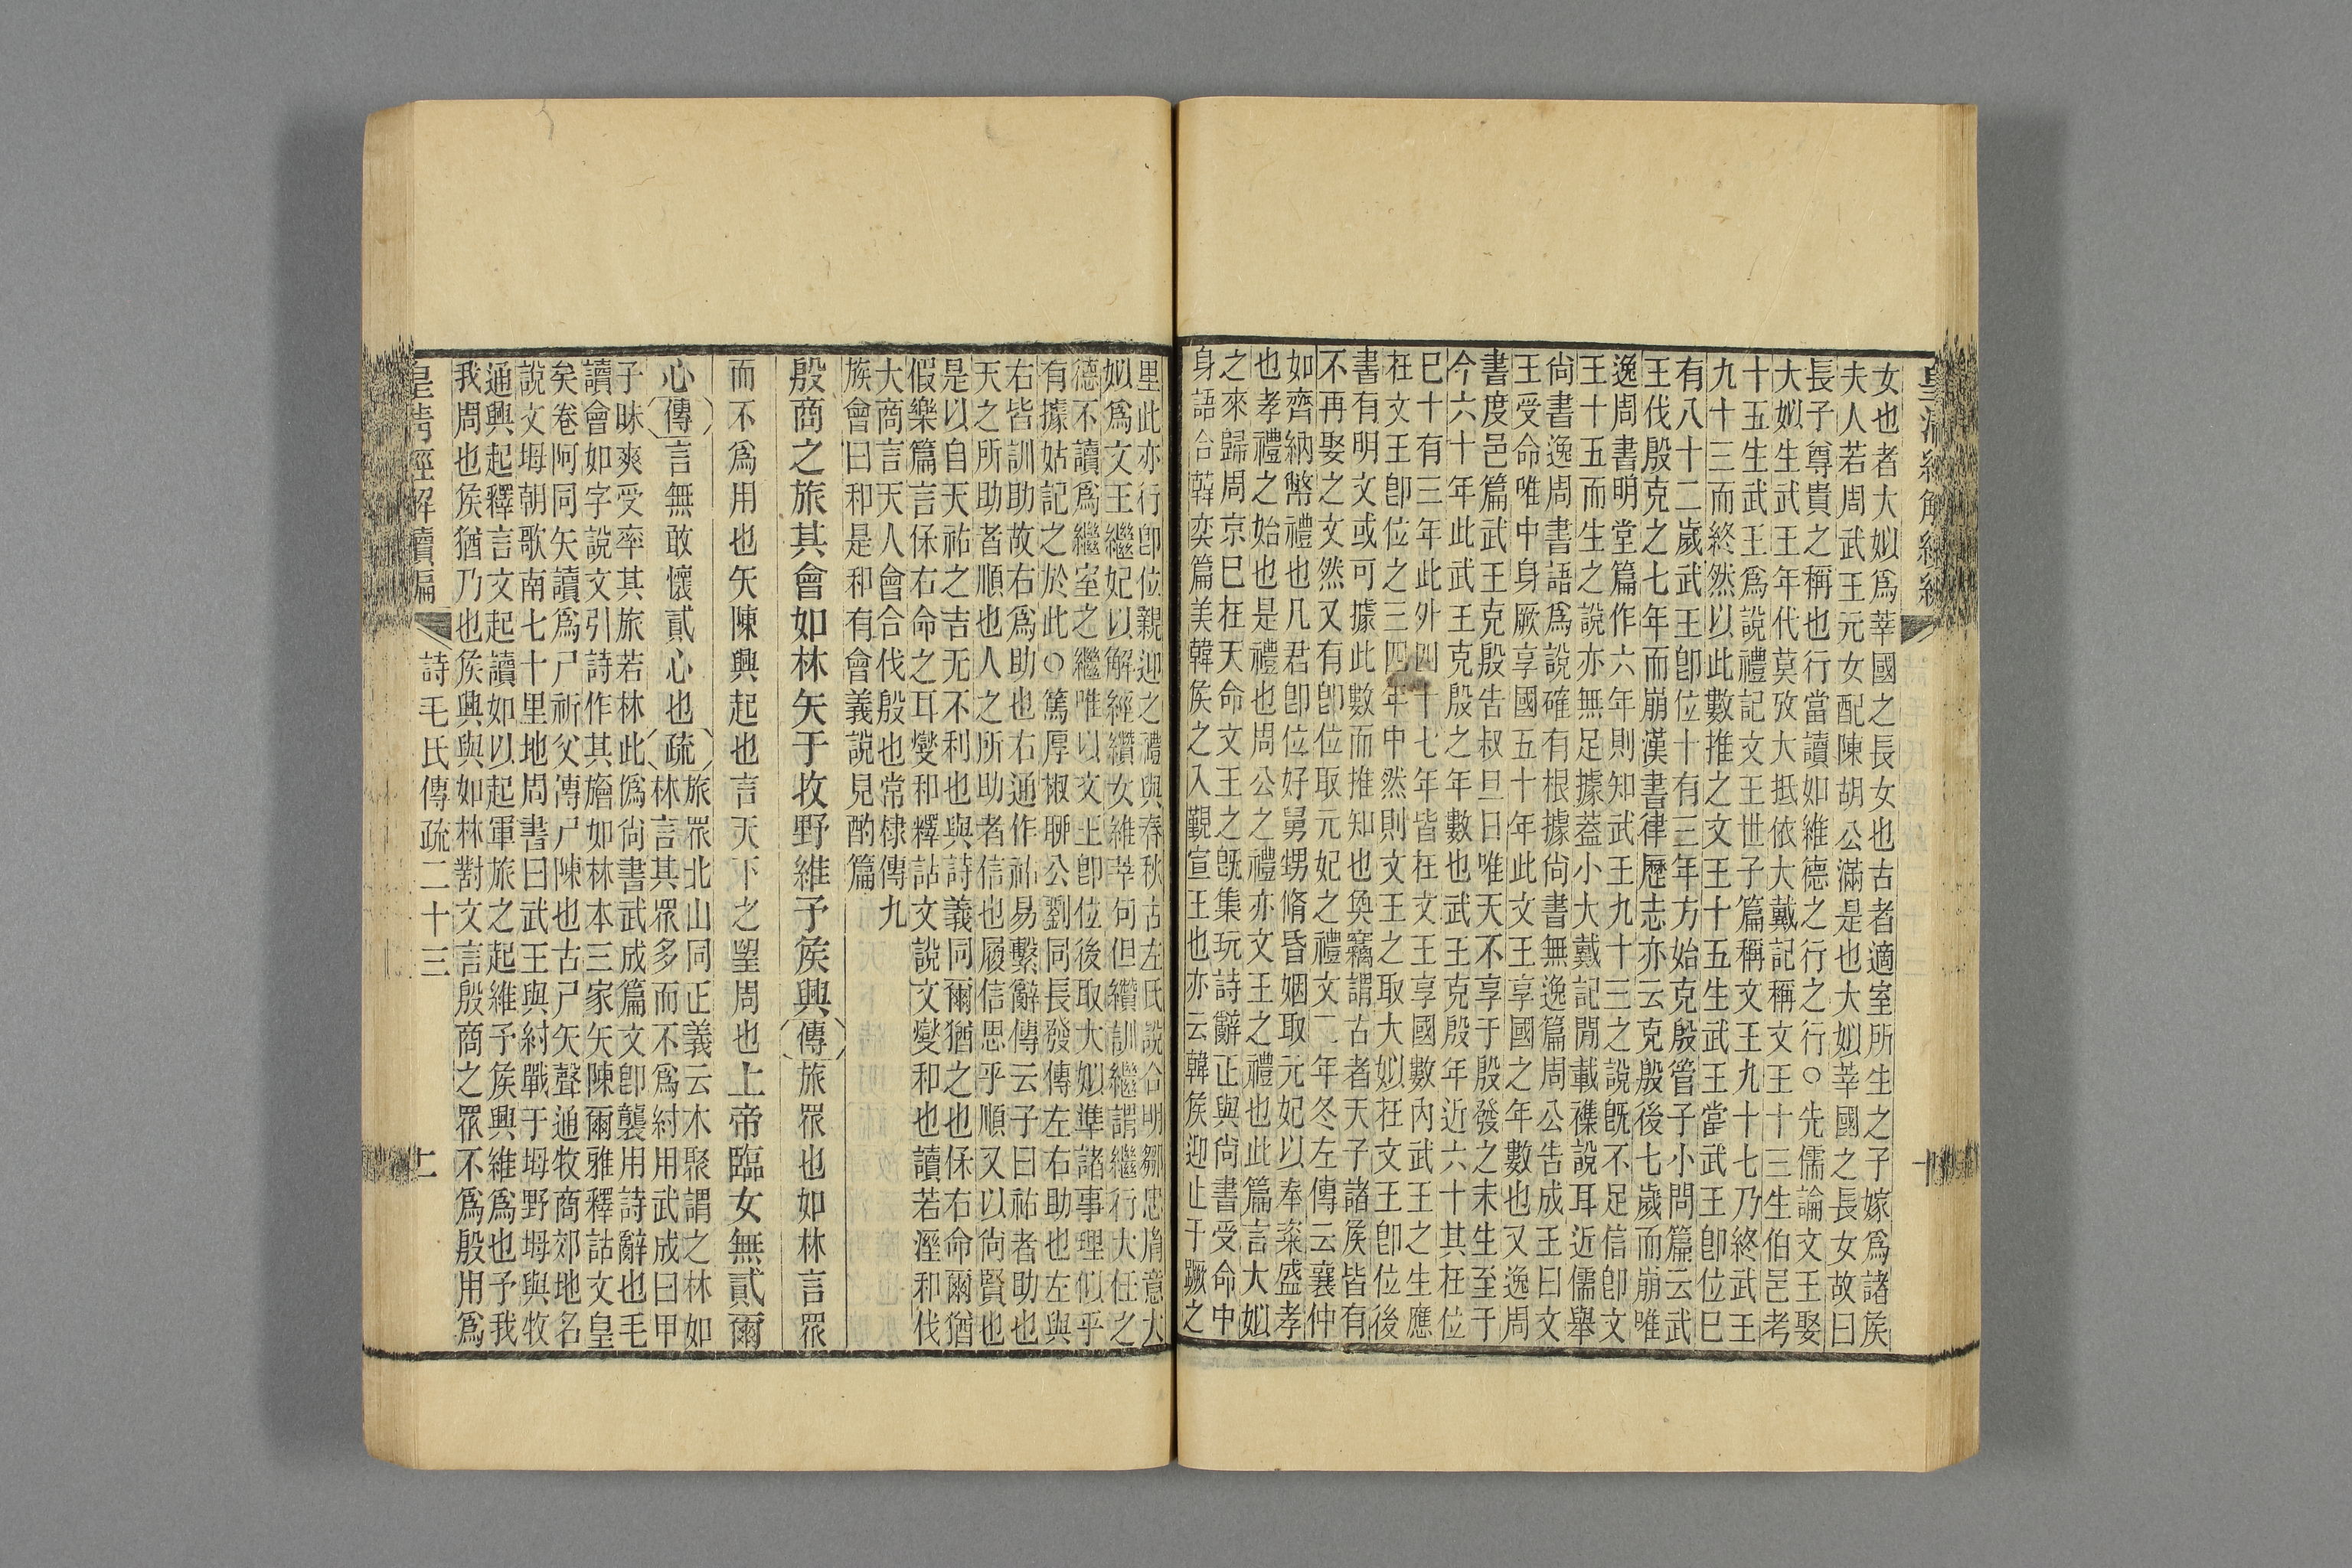 皇清經解續編
女也者大姒爲莘國之長女也古者適室所生之子嫁爲諸矦
夫人若周武王元女配陳胡公滿是也大姒莘國之長女故曰
長子尊貴之稱也行當讀如維德之行之行○先儒論文王娶
大姒生武王年代莫攷大抵依大戴記稱文王十三生伯邑考
十五生武王爲說禮記文王世子篇稱文王九十七乃終武王
九十三而終然以此數推之文王十五生武王當武王卽位巳
有八十二歲武王卽位十有三年方始克殷管子小問篇云武
王伐殷克之七年而崩漢書律歷志亦云克殷後七歲而崩唯
逸周書明堂篇作六年則知武王九十三之說旣不足信卽文
王十五而生之說亦無足據葢小大戴記閒載襍說耳近儒舉
尙書逸周書語爲說確有根據尙書無逸篇周公告成王曰文
王受命唯中身厥享國五十年此文王享國之年數也又逸周
書度邑篇武王克殷告叔旦曰唯天不享于殷發之未生至于
今六十年此武王克殷之年數也武王克殷年近六十其在位
巳十有三年此外四十七年皆在文王享國數內武王之生應
在文王卽位之三四年中然則文王之取大姒在文王卽位後
書有明文或可據此數而推知也奐竊謂古者天子諸矦皆有
不再娶之文然又有卽位取元妃之禮文二年冬左傳云襄仲
如齊納幣禮也凡君卽位好舅甥脩昏姻取元妃以奉粢盛孝
也孝禮之始也是禮也周公之禮亦文王之禮也此篇言大姒
之來歸周京巳在天命文王之旣集玩詩辭正與尙書受命中
身語合韓奕篇美韓矦之入覲宣王也亦云韓矦迎止于蹶之
里此亦行卽位親迎之禮與春秋古左氏說合明鄒忠胤意大
姒爲文王繼妃以解經纘女維莘句但纘訓繼謂繼行大任之
德不讀爲繼室之繼唯以文王卽位後取大姒準諸事理似乎
有據姑記之於此○篤厚椒聊公劉同長發傳左右助也左與
右皆訓助故右爲助也右通作祐易繫辭傳云子曰祐者助也
天之所助者順也人之所助者信也履信思乎順又以尙賢也
是以自天祐之吉无不利也與詩義同爾猶之也保右命爾猶
假樂篇言保右命之耳燮和釋詁文說文燮和也讀若溼和伐
大商言天人會合伐殷也常棣傳九
族會曰和是和有會義說見酌篇
殷商之旅其會如林矢于牧野維予矦興傳旅眾也如林言眾
而不爲用也矢陳興起也言天下之望周也上帝臨女無貳爾
心傳言無敢懷貳心也疏旅眾北山同正義云木聚謂之林如
林言其眾多而不爲紂用武成曰甲
子昧爽受率其旅若林此僞尙書武成篇文卽襲用詩辭也毛
讀會如字說文引詩作其旝如林本三家矢陳爾雅釋詁文皇
矣卷阿同矢讀爲尸祈父傳尸陳也古尸矢聲通牧商郊地名
說文坶朝歌南七十里地周書曰武王與紂戰于坶野坶與牧
通興起釋言文起讀如以起軍旅之起維予矦興維爲也予我
我周也矦猶乃也矦興與如林對文言殷商之眾不爲殷用爲
皇淸經解續編
詩毛氏傳疏二十三